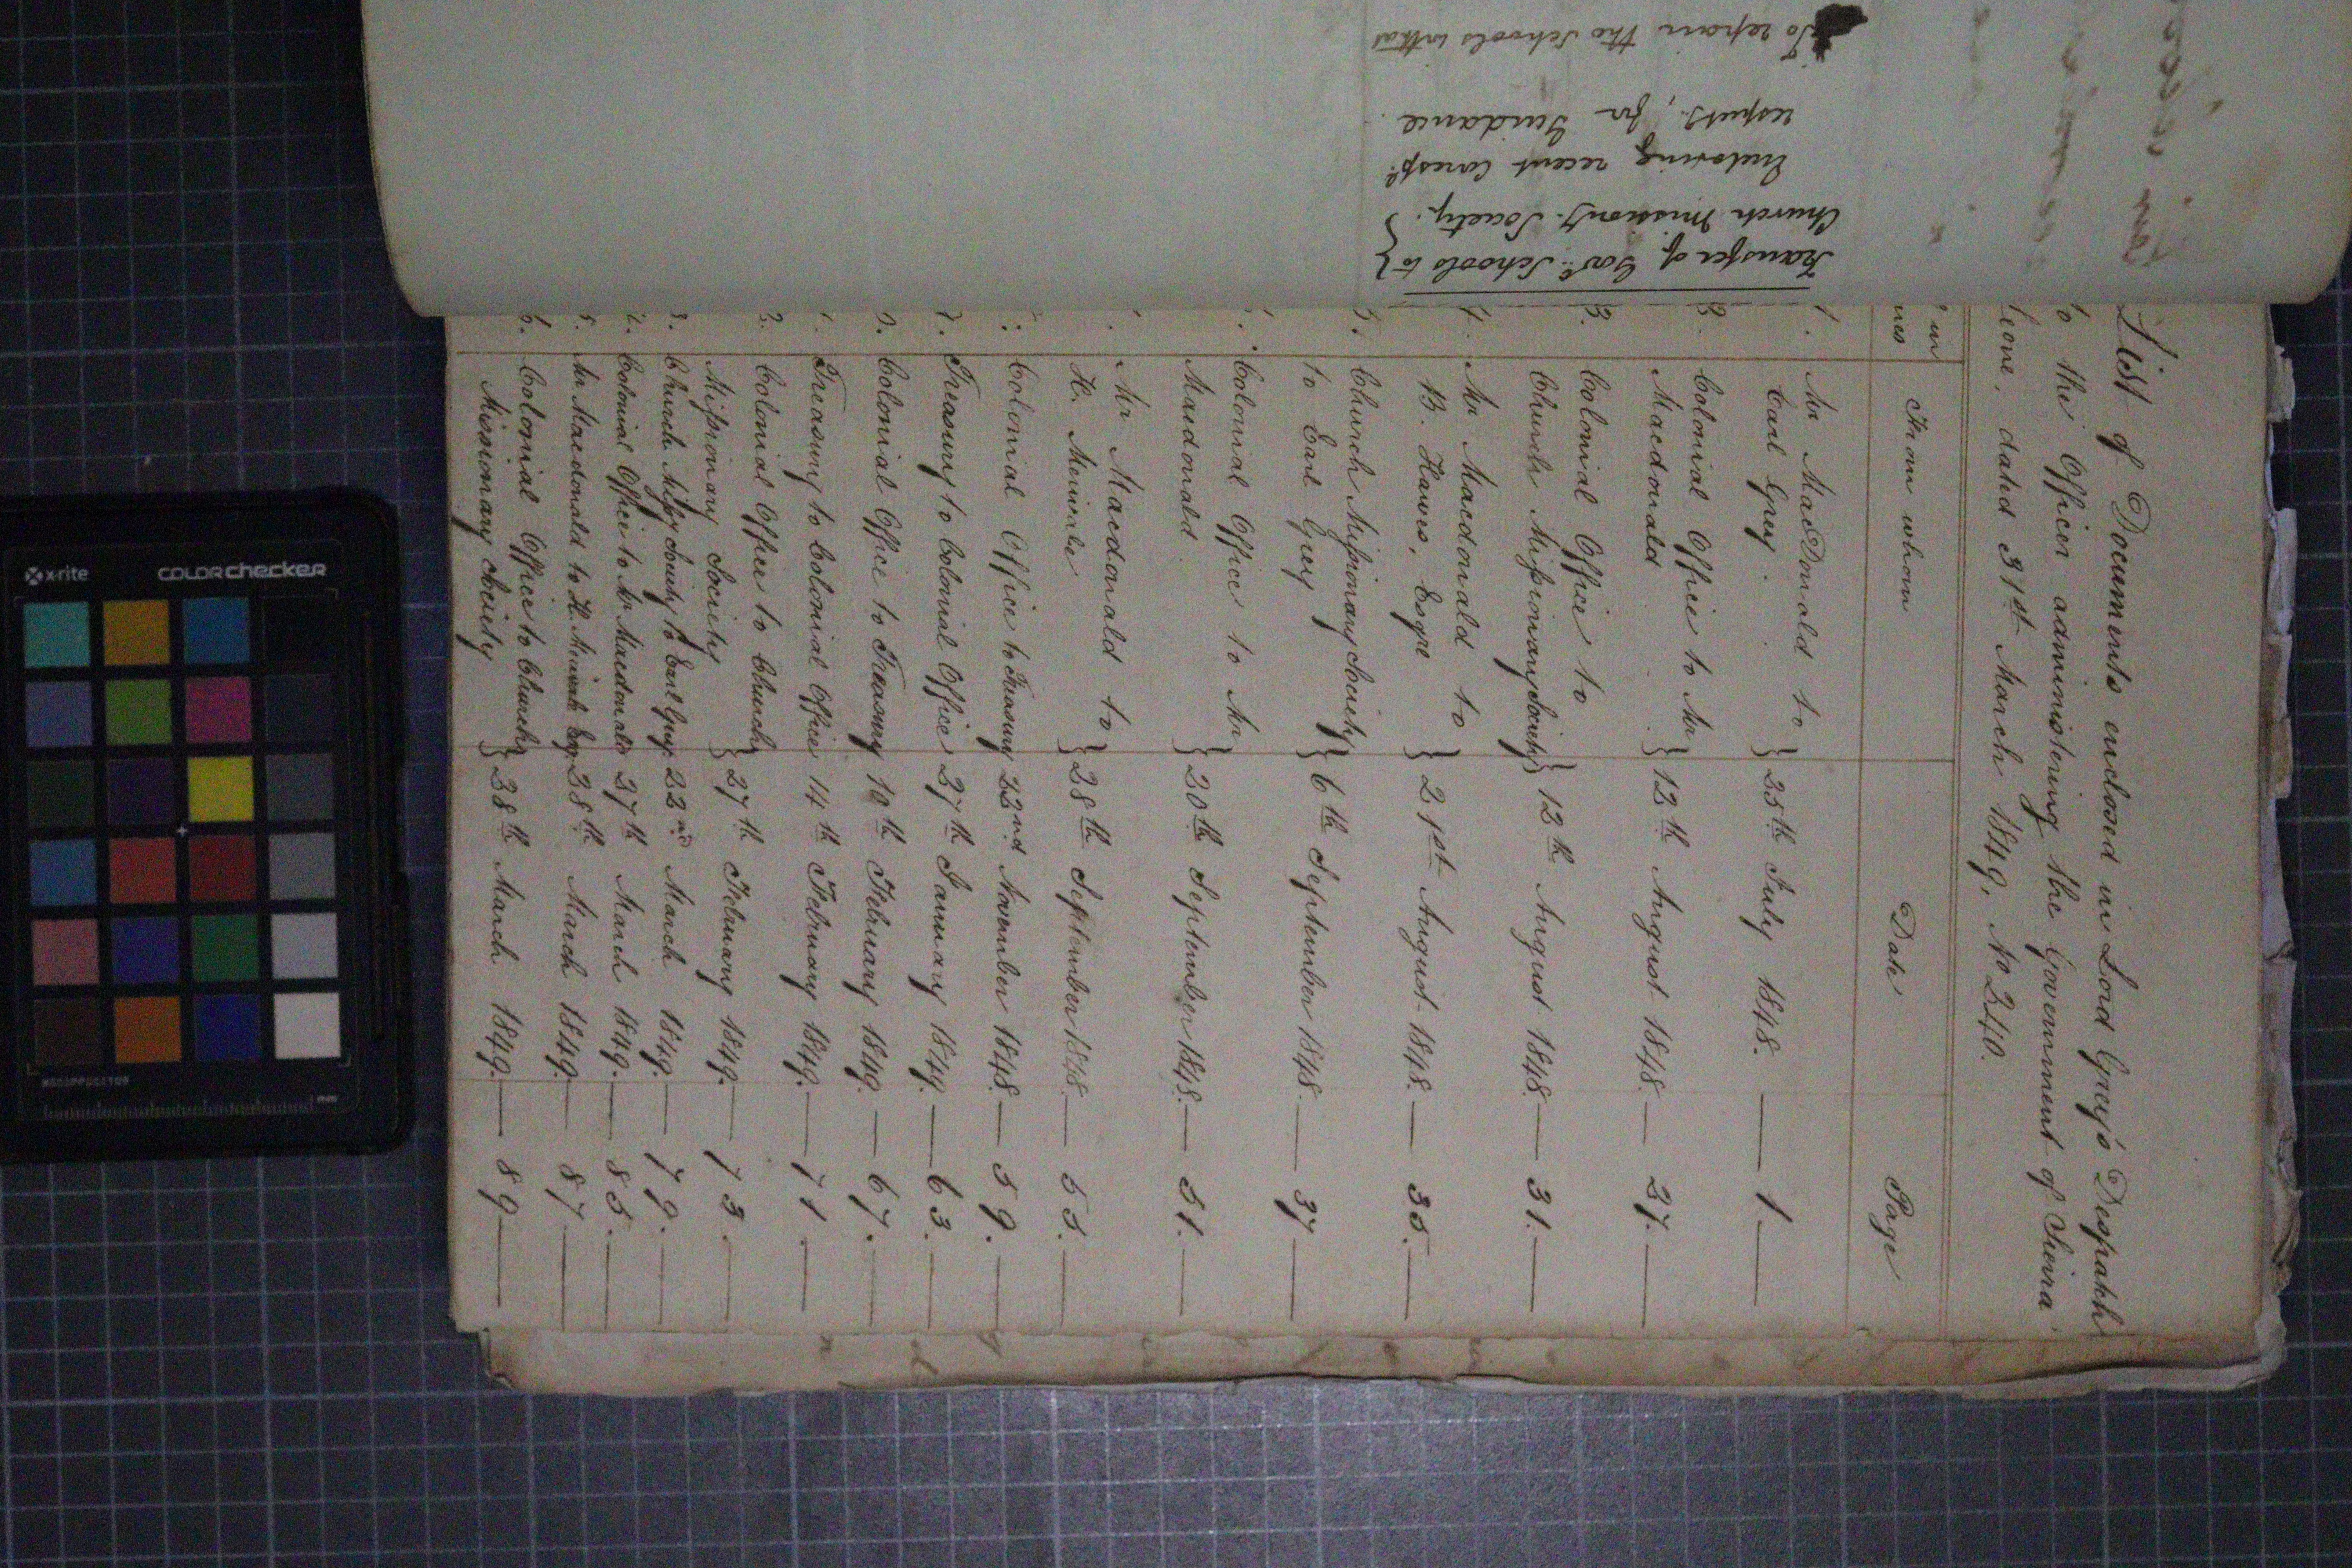 List of Documents enclosed in Lord Grey's Despatch
to the Officer administering the Government of Sierra
Leone, dated 31st March 1849, No 240.
From whom Date Page
1. Mr MacDonald to
Earl Grey. } 25th July 1848. — 1 —
2. Colonial Office to Mr
Macdonald } 12th August 1848. — 27. —
3. Colonial Office to
Church Missionary Society } 12th August 1848. — 31. —
4. Mr Macdonald to
B. Hawes, Esqre } 21st August 1848. — 35. —
5. Church Missionary Society
to Earl Grey } 6th September 1848. — 37 —
Colonial Office to Mr
Macdonald. } 20th September 1848. — 51. —
Mr Macdonald to
H. Merivale } 28th September 1848. — 55. —
Colonial Office to Treasury 22nd November 1848. — 59. —
Treasury to Colonial Office 27th January 1849. — 63. —
Colonial Office to Treasury 10th February 1849. — 67. —
Treasury to Colonial Office 14th February 1849. — 71. —
2. Colonial Office to Church
Missionary Society } 27th February 1849. — 73. —
3. Church Missy Society to Earl Grey 22nd March 1849. — 79. —
4. Colonial Office to Mr Macdonald 27th March 1849. — 85. —
5. Mr Macdonald to H. Merivale Esq 28th March 1849. — 87 —
6. Colonial Office to Church
Missionary Society } 28th March 1849. — 89 —
Transfer of Govt. Schools to }
Church Missiony. Society. }
Enclosing recent Corresp.
respectg., for Guidance.
To repair the Schools
x-rite
colorchecker
mm